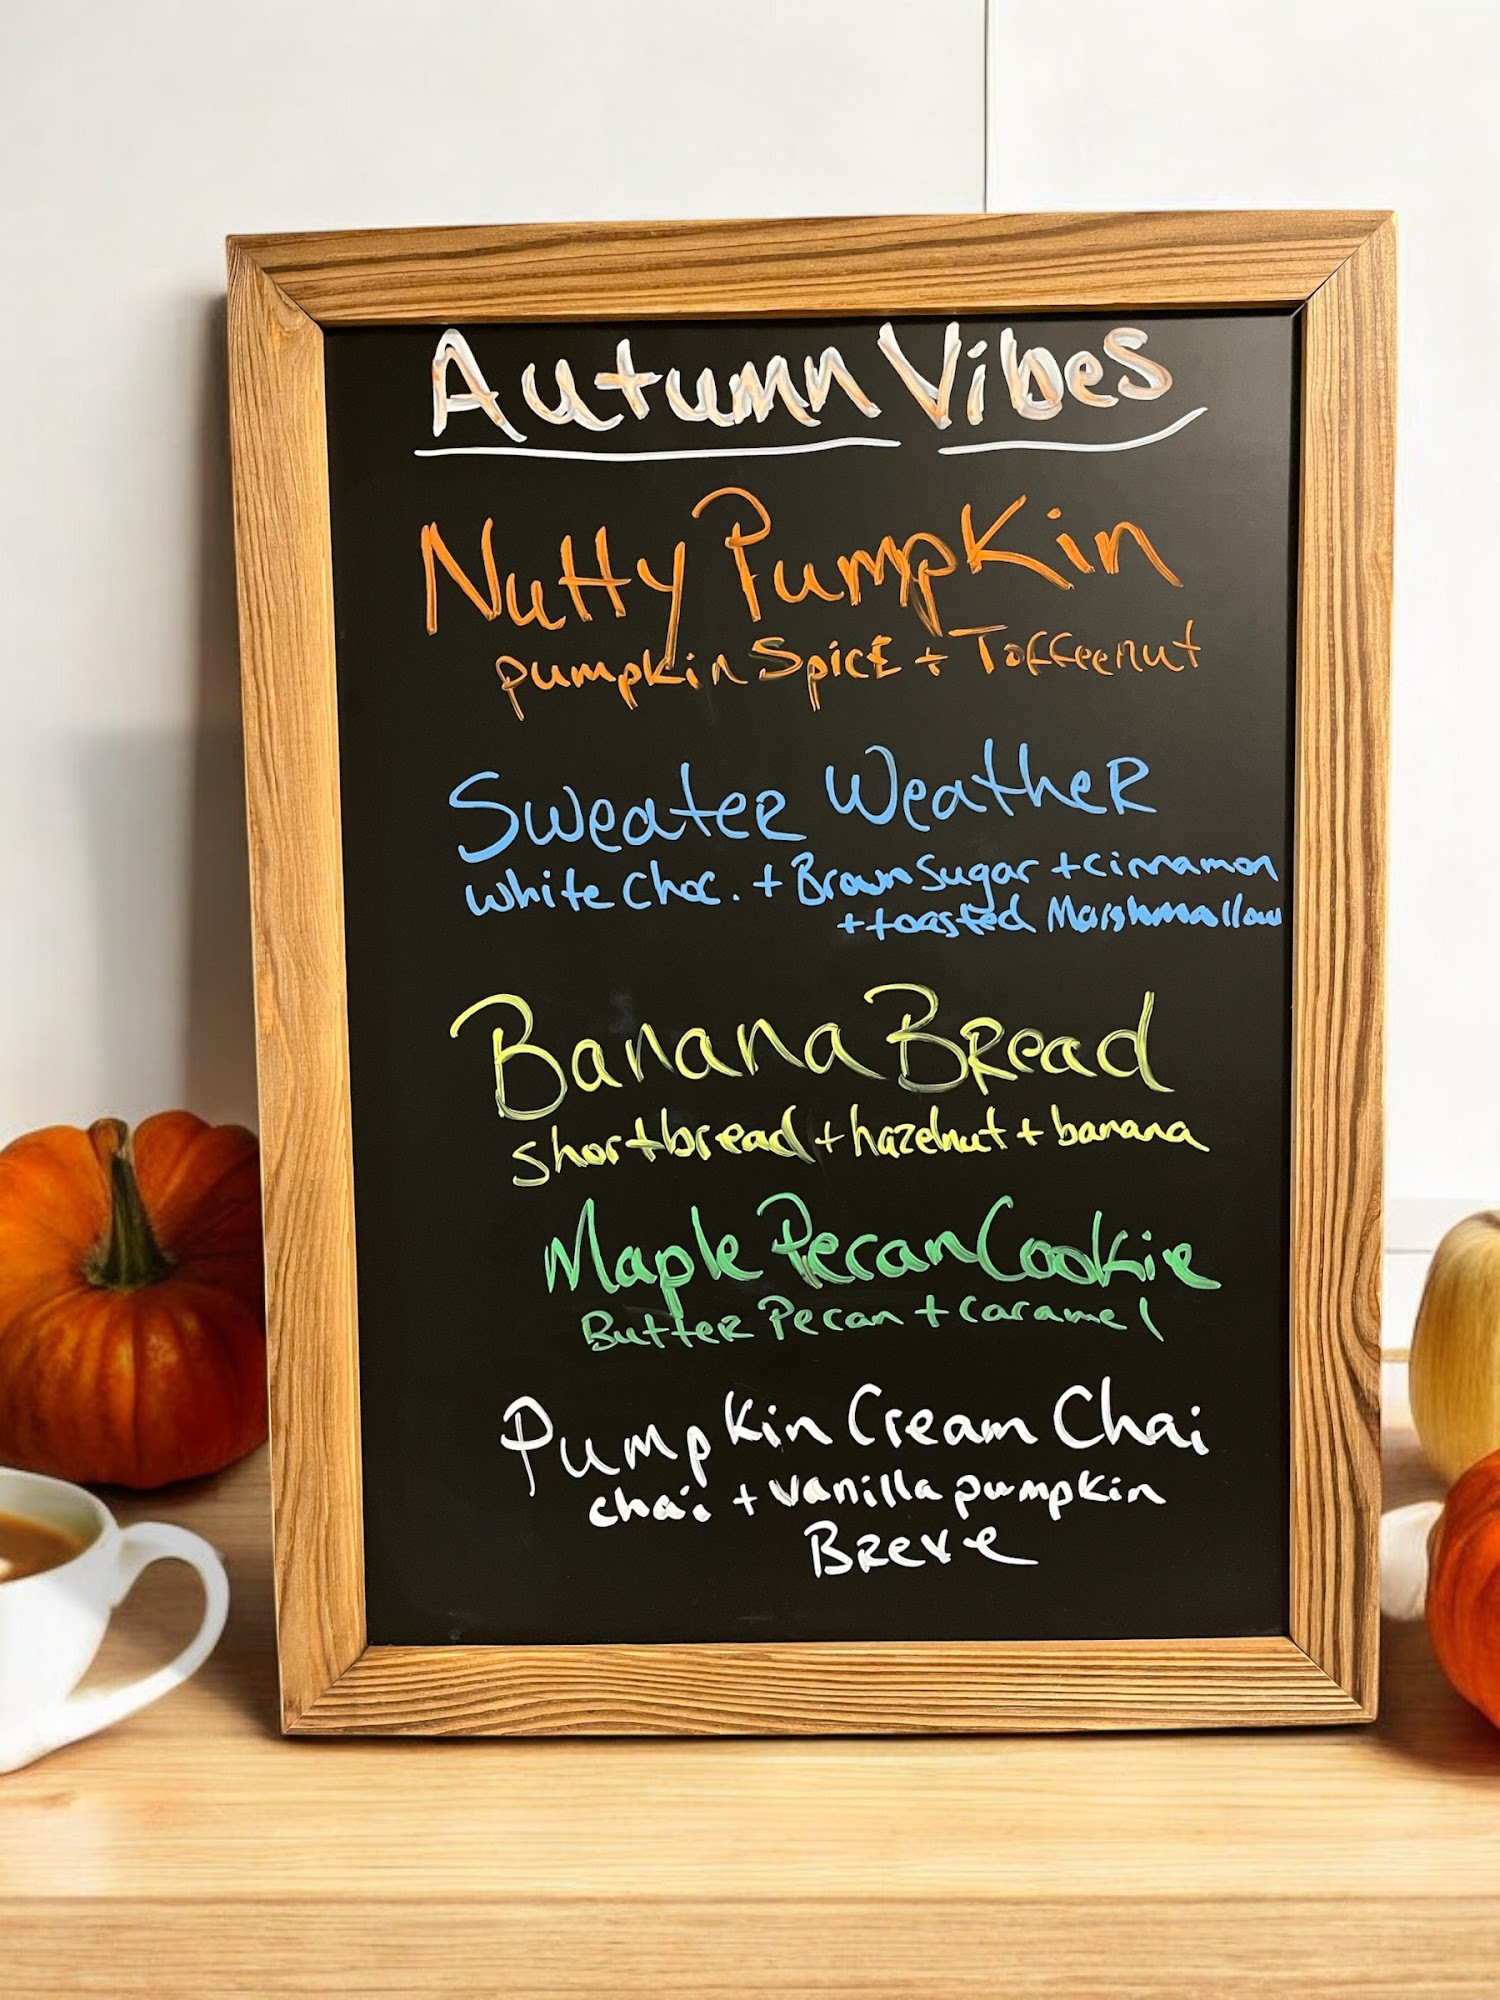 Autumn Vibes
Nutty Pumpkin
pumpkin Spice + Toffeenut
Sweater Weather
White Choc. + Brown Sugar + cinnamon
+ toasted Marshmallow
Banana Bread
shortbread + hazelnut + banana
Maple Pecan Cookie
Butter Pecan + caramel
Pumpkin Cream Chai
chai + vanilla pumpkin
Breve